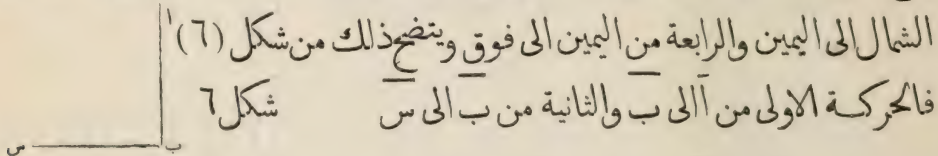 الشمال الى اليمين والرابعة من اليمين الى فوق ويتضح ذلك من شكل (٦)
فالحركة الاولى من آ الى ب والثانية من ب الى س
شكل ٦
ا
ب
س